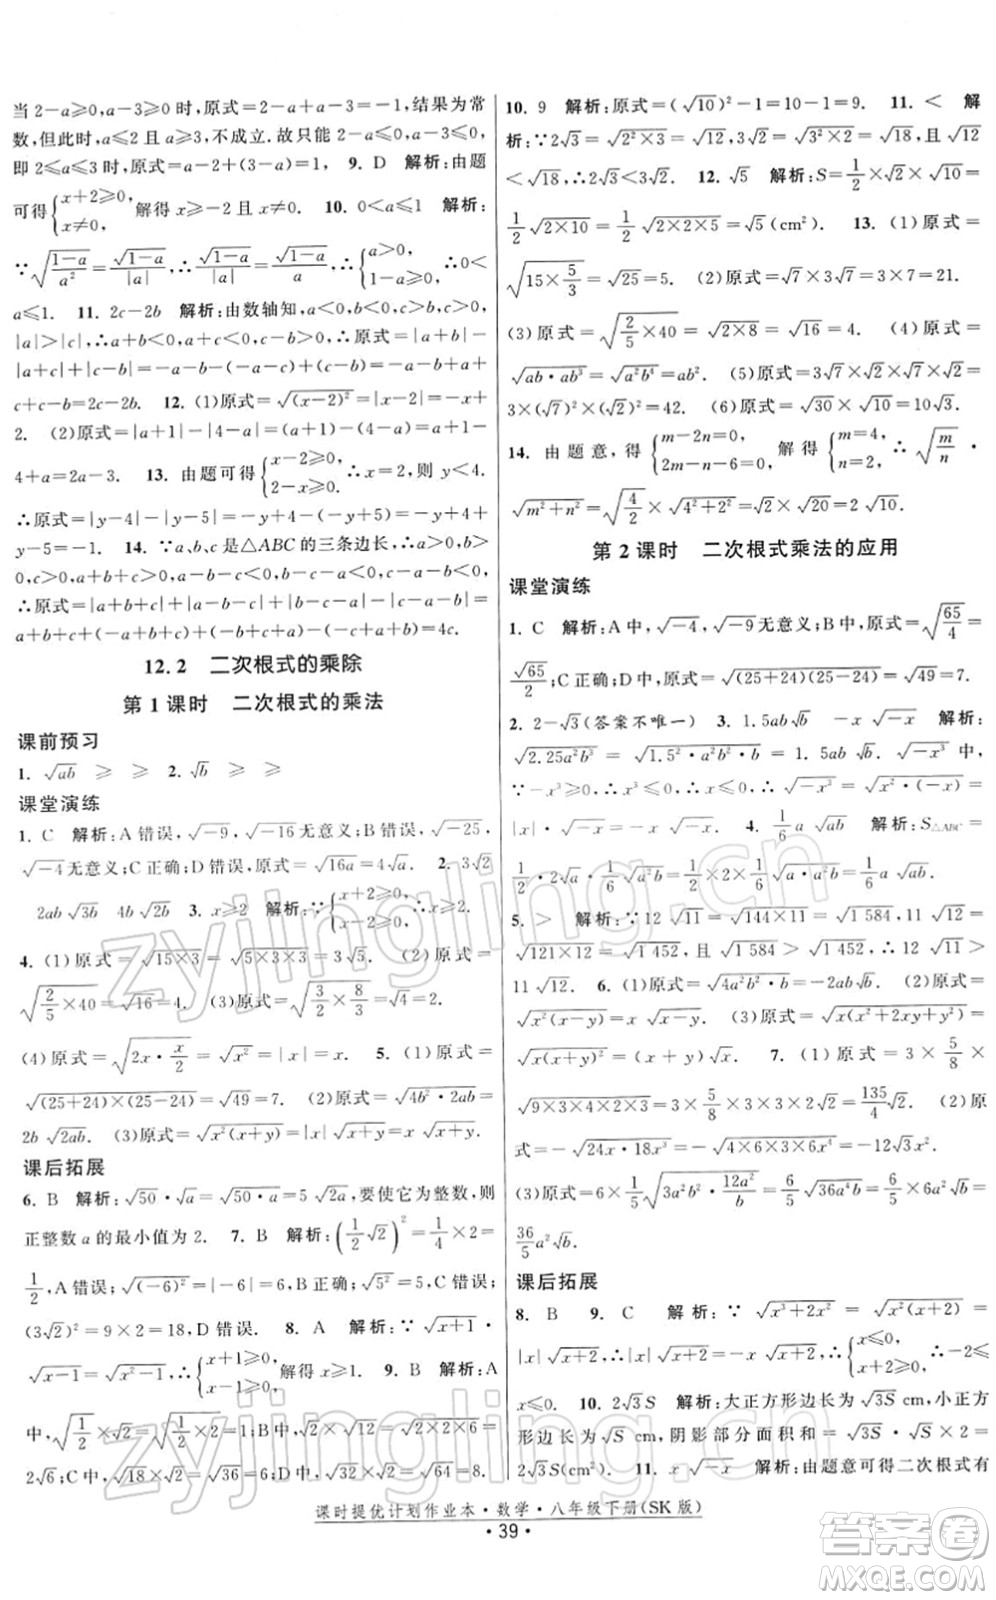 当 2-a≥0,a-3≥0 时,原式=2-a+a-3=-1,结果为常
数,但此时,a≤2 且 a≥3,不成立.故只能 2-a≤0,a-3≤0,
即 2≤a≤3 时,原式=a-2+(3-a)=1, 9. D 解析:由题
可得{x+2≥0, x≠0, 解得 x≥-2 且 x≠0. 10. 0<a≤1 解析:
∵√((1-a)/a²)=√(1-a)/|a|,∴√(1-a)/|a|=√(1-a)/a.∴{a>0, 1-a≥0. ∴0<
a≤1. 11. 2c-2b 解析:由数轴知,a<0,b<0,c>b,c>0,
|a|>|c|,∴a+b<0,a+c<0,c-b>0,∴原式=|a+b|-
|a+c|+|c-b|=-a-b-(-a-c)+(c-b)=-a-b+a+
c+c-b=2c-2b. 12. (1)原式=√((x-2)²)=|x-2|=x-
2. (2)原式=|a+1|-|4-a|=(a+1)-(4-a)=a+1-
4+a=2a-3. 13. 由题可得{x-2≥0, 2-x≥0. ∴x=2,则 y<4.
∴原式=|y-4|-|y-5|=-(y-4)+(y-5)=-y+4+
y-5=-1. 14. ∵a、b、c 是△ABC 的三条边长,∴a>0,b>
0,c>0,a+b-c>0,b-c-a<0,c-b-a<0,∴原式=
|a+b+c|+|a+b-c|-|b-c-a|+|c-b-a|=
a+b+c+(a+b-c)+(b-c-a)-(c-b-a)=4c.
12.2 二次根式的乘除
第 1 课时 二次根式的乘法
课前预习
1. √ab ≥ ≥ 2. √b ≥ ≥
课堂演练
1. C 解析:A 错误,√-9,√-16无意义;B 错误,√-25,
√-4无意义;C 正确;D 错误,原式=√16a=4√a. 2. 3√2
2ab√3b 4b√2a 3. x≥2 解析:∵{x+2≥0, x-2≥0, ∴x≥2.
4. (1)原式=√(15×3)=√(5×3×3)=3√5. (2)原式=
√(2/5×40)=√16=4. (3)原式=√(3/2×8/3)=√4=2.
(4)原式=√(2x·x/2)=√x²=|x|=x. 5. (1)原式=
√((25+24)×(25-24))=√49=7. (2)原式=√(4b²·2ab)=
2b√2ab. (3)原式=√(x²(x+y))=|x|√(x+y)=x√(x+y).
课后拓展
6. B 解析:√50·√a=√(50·a)=5√2a,要使它为整数,则
正整数 a 的最小值为 2. 7. B 解析:(1/2√2)²=1/4×2=
1/2,A 错误;√((-6)²)=|-6|=6,B 正确;√5²=5,C 错误;
(3√2)²=9×2=18,D 错误. 8. A 解析:∵√(x+1)·
√(x-1)=√(x²-1),∴{x+1≥0, x-1≥0, 解得 x≥1. 9. B 解析:A
中,√(1/2)×√2=√(1/2×2)=1;B 中,√2×√2×√6=√(2×2×6)=
2√6;C 中,√18×√2=√36=6;D 中,√32×√2=√64=8.
10. 9 解析:原式=(√10)²-1=10-1=9. 11. < 解
析:∵2√3=√(2²×3)=√12,3√2=√(3²×2)=√18,且√12
<√18,∴2√3<3√2. 12. √5 解析:S=1/2×√2×√10=
1/2√(2×10)=1/2√(2×2×5)=√5(cm²). 13. (1)原式=
√(15×5/3)=√25=5. (2)原式=√7×3√7=3×7=21.
(3)原式=√(2/5×40)=√(2×8)=√16=4. (4)原式=
√(ab·ab³)=√(a²b⁴)=ab². (5)原式=3√7×√2×√7×√2=
3×(√7)²×(√2)²=42. (6)原式=√30×√10=10√3.
14. 由题意,得{m-2n=0, 2m-n-6=0, 解得{m=4, n=2, ∴√(m/n)·
√(m²+n²)=√(4/2)×√(4²+2²)=√2×√20=2√10.
第 2 课时 二次根式乘法的应用
课堂演练
1. C 解析:A 中,√-4,√-9无意义;B 中,原式=√(65/4)=
√65/2;C 正确;D 中,原式=√((25+24)(25-24))=√49=7.
2. 2-√3(答案不唯一) 3. 1.5ab√b -x√-x 解析:
√(2.25a²b³)=√(1.5²·a²b²·b)=1.5ab√b. √-x³中,
∵-x³≥0,∴x≤0,∴√-x³=√(x²·(-x))=
|x|·√-x=-x√-x. 4. 1/6a√ab 解析:S△ABC=
1/2·2√a·1/6√(a²b)=1/6√(a·a²b)=1/6a√ab.
5. > 解析:∵12√11=√(144×11)=√1584,11√12=
√(121×12)=√1452,且√1584>√1452,∴12√11>
11√12. 6. (1)原式=-√(4a²b²·b)=-2ab√b. (2)原式=
√(x²(x-y))=x√(x-y). (3)原式=√(x(x²+2xy+y²))=
√(x(x+y)²)=(x+y)√x. 7. (1)原式=3×5/8×
√(9×3×4×2×3)=3×5/8×3×3×2√2=135/4√2. (2)原
式=-√(24x·18x³)=-√(4×6×3×6x⁴)=-12√3x².
(3)原式=6×1/5√(3a³b²·12a²/b)=6/5√(36a⁴b)=6/5×6a²√b=
36/5a²√b.
课后拓展
8. B 9. C 解析:∵√(x³+2x²)=√(x²(x+2))=
|x|√(x+2)=-x√(x+2),∴{x≤0, x+2≥0, ∴-2≤
x≤0. 10. 2√3S 解析:大正方形边长为√3S cm,小正方
形边长为√S cm,阴影部分面积和=2×√S×(√3S-√S)=
2√3S(cm²). 11. x√-x 解析:由题意可得二次根式有
课时提优计划作业本·数学·八年级下册(SK 版)
·39·
zyjingling.cn
zyjingling.cn
答案圈
MXQE.COM